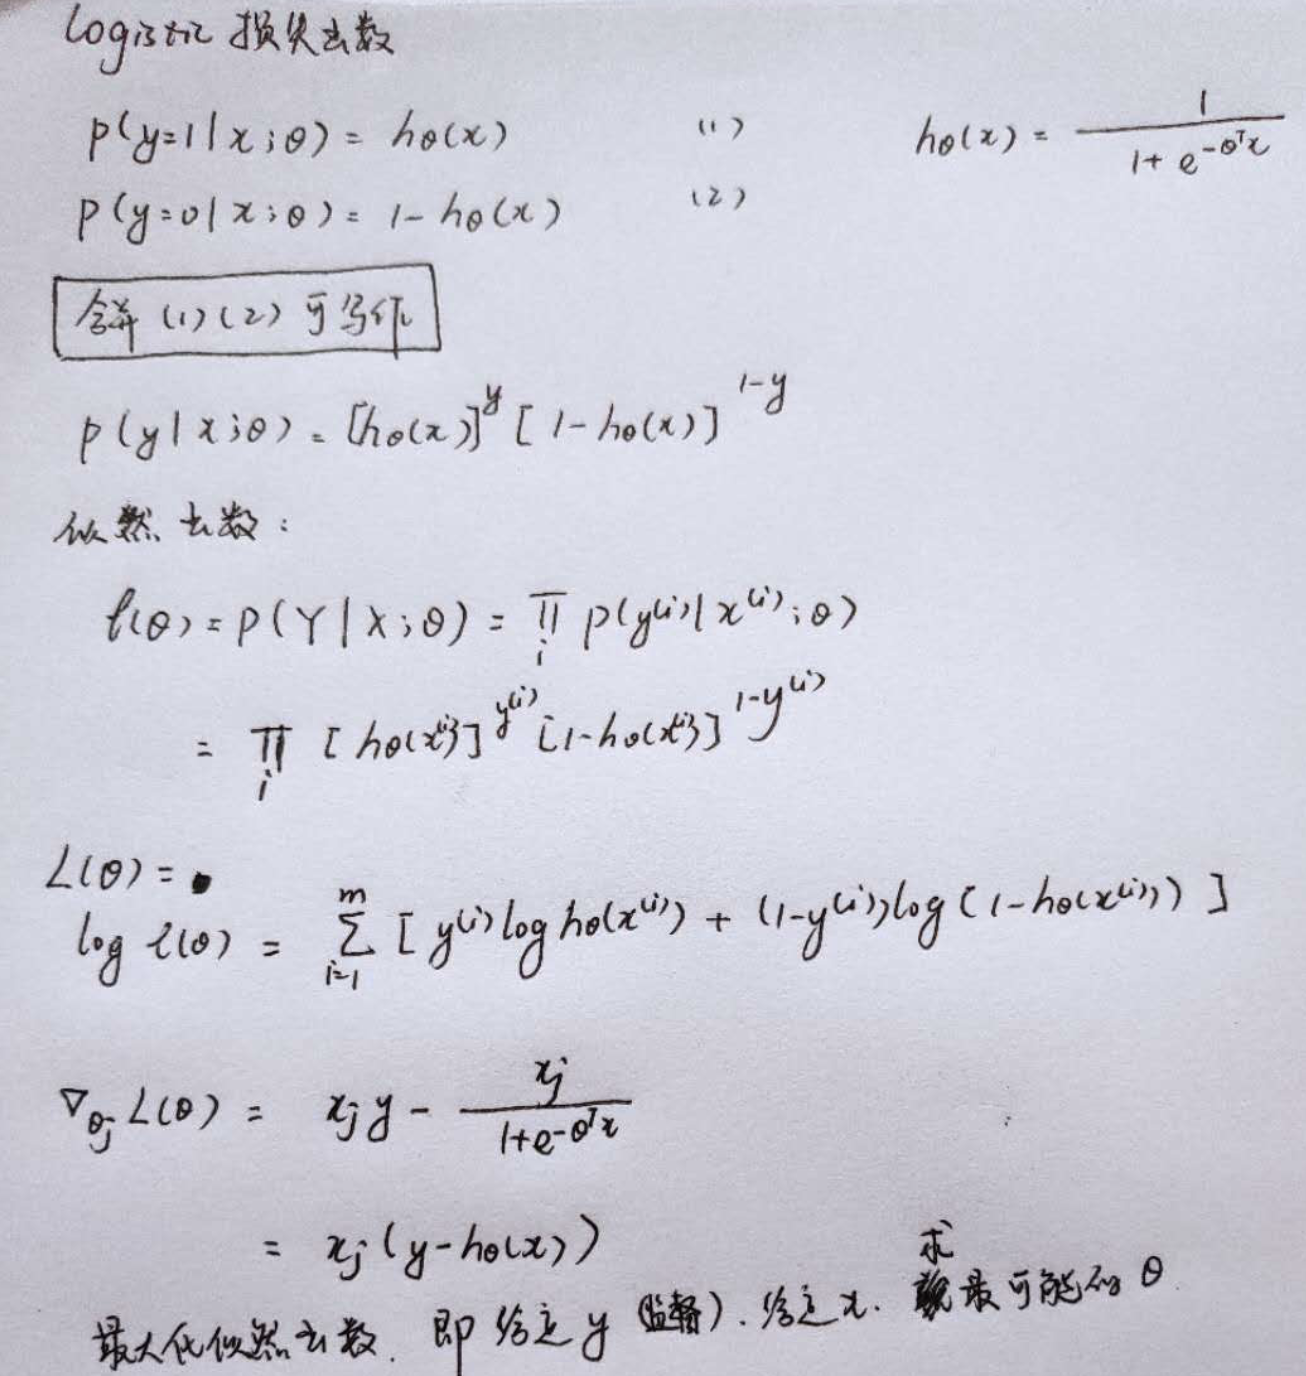 logistic 损失函数
p(y=1|x;θ) = hθ(x) (1) hθ(x) = 1 / (1 + e^{-θᵀx})
p(y=0|x;θ) = 1 - hθ(x) (2)
合并 (1)(2) 可写作
p(y|x;θ) = [hθ(x)]^y [1 - hθ(x)]^{1-y}
似然函数:
l(θ) = p(Y|X;θ) = ∏_i p(y^{(i)}|x^{(i)};θ)
= ∏_i [hθ(x^{(i)})]^{y^{(i)}} [1 - hθ(x^{(i)})]^{1-y^{(i)}}
L(θ) =
log l(θ) = ∑_{i=1}^{m} [y^{(i)} log hθ(x^{(i)}) + (1-y^{(i)}) log(1 - hθ(x^{(i)}))]
∇_{θj} L(θ) = xj y - xj / (1+e^{-θᵀx})
= xj (y - hθ(x))
最大化似然函数. 即给定 y (监督). 给定 x. 求最可能的 θ.